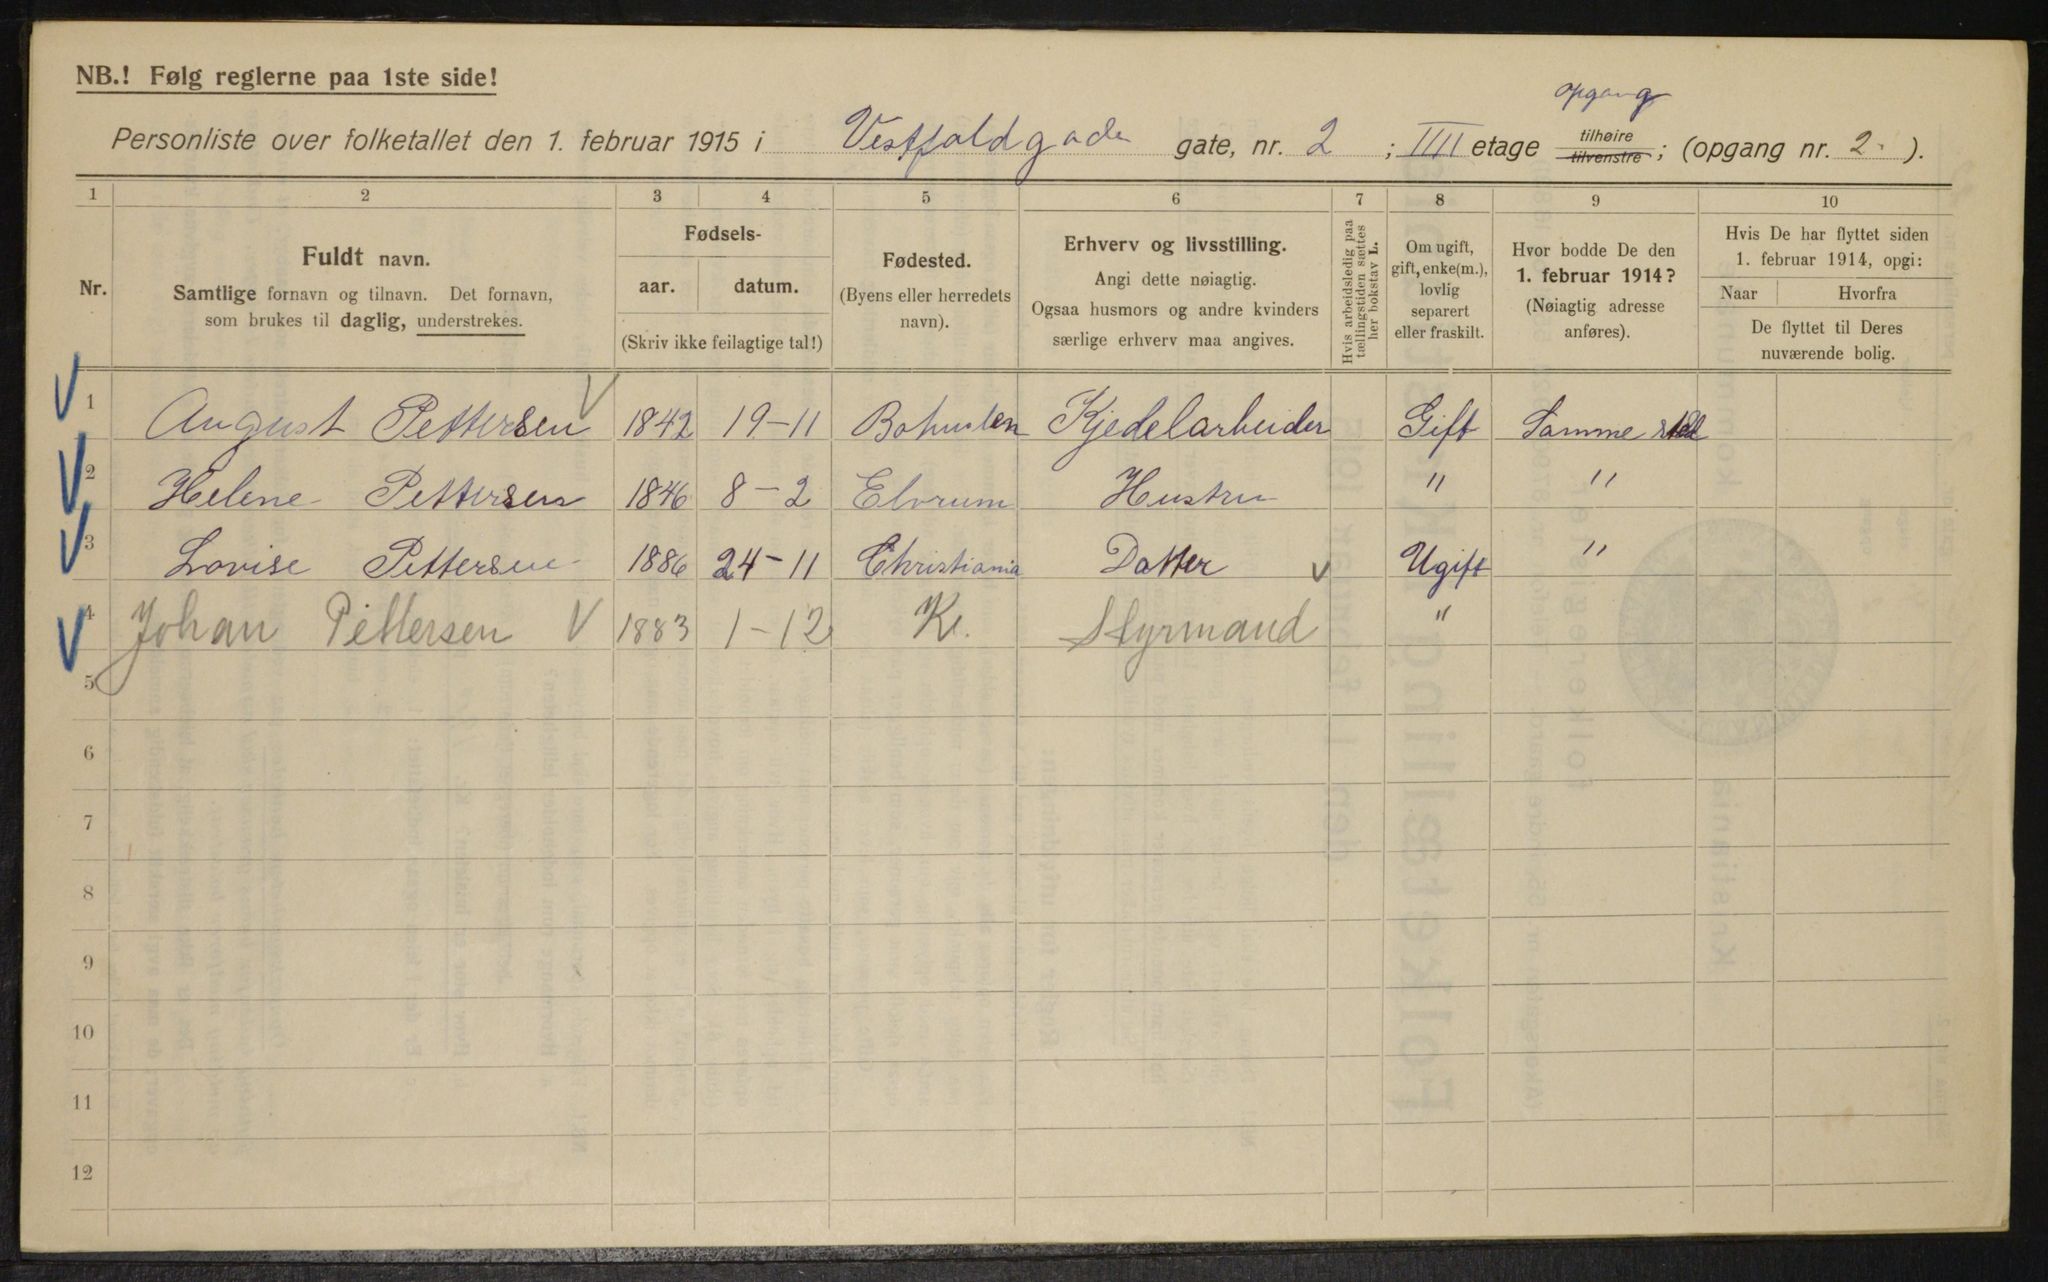 NB.! Følg reglerne paa 1ste side!
opgang
Personliste over folketallet den 1. februar 1915 i Vestfoldgade gate, nr. 2 ; IIII etage tilhøire tilvenstre ; (opgang nr. 2. ).
1 2 3 4 5 6 7 8 9 10
Nr.
Fuldt navn.
Samtlige fornavn og tilnavn. Det fornavn,
som brukes til daglig, understrekes.
Fødsels-
aar. datum.
(Skriv ikke feilagtige tal!)
Fødested.
(Byens eller herredets
navn).
Erhverv og livsstilling.
Angi dette nøiagtig.
Ogsaa husmors og andre kvinders
særlige erhverv maa angives.
Hvis arbeidsledig paa
tællingstiden sættes
her bokstav L.
Om ugift,
gift, enke(m.),
lovlig
separert
eller fraskilt.
Hvor bodde De den
1. februar 1914?
(Nøiagtig adresse
anføres).
Hvis De har flyttet siden
1. februar 1914, opgi:
Naar Hvorfra
De flyttet til Deres
nuværende bolig.
1 August Pettersen 1842 19-11 Bohuslen Kjedelarbeider Gift Samme sted
2 Helene Pettersen 1846 8-2 Elvrum Hustru " "
3 Lovise Pettersen 1886 24-11 Christiania Datter Ugift "
4 Johan Pettersen 1883 1-12 Kr. Styrmand "
5
6
7
8
9
10
11
12